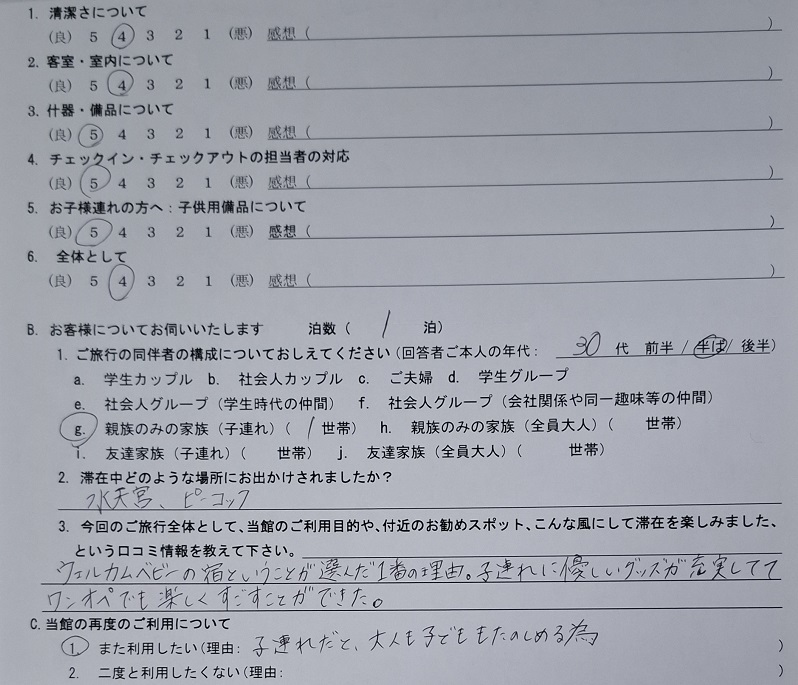 1. 清潔さについて
(良) 5 4 3 2 1 (悪) 感想 ( )
2. 客室・室内について
(良) 5 4 3 2 1 (悪) 感想 ( )
3. 什器・備品について
(良) 5 4 3 2 1 (悪) 感想 ( )
4. チェックイン・チェックアウトの担当者の対応
(良) 5 4 3 2 1 (悪) 感想 ( )
5. お子様連れの方へ:子供用備品について
(良) 5 4 3 2 1 (悪) 感想 ( )
6. 全体として
(良) 5 4 3 2 1 (悪) 感想 ( )
B. お客様についてお伺いいたします 泊数 ( 1 泊)
1. ご旅行の同伴者の構成についておしえてください(回答者ご本人の年代: 30 代 前半 / 半ば / 後半)
a. 学生カップル b. 社会人カップル c. ご夫婦 d. 学生グループ
e. 社会人グループ(学生時代の仲間) f. 社会人グループ(会社関係や同一趣味等の仲間)
g. 親族のみの家族(子連れ)( 1 世帯) h. 親族のみの家族(全員大人)( 世帯)
i. 友達家族(子連れ)( 世帯) j. 友達家族(全員大人)( 世帯)
2. 滞在中どのような場所にお出かけされましたか?
水天宮、ピーコック
3. 今回のご旅行全体として、当館のご利用目的や、付近のお勧めスポット、こんな風にして滞在を楽しみました、
という口コミ情報を教えて下さい。
ウェルカムベビーの宿ということが選んだ1番の理由。子連れに優しいグッズが充実してて
ワンオペでも楽しくすごすことができた。
C. 当館の再度のご利用について
1. また利用したい(理由: 子連れだと、大人も子どももたのしめる為 )
2. 二度と利用したくない(理由: )